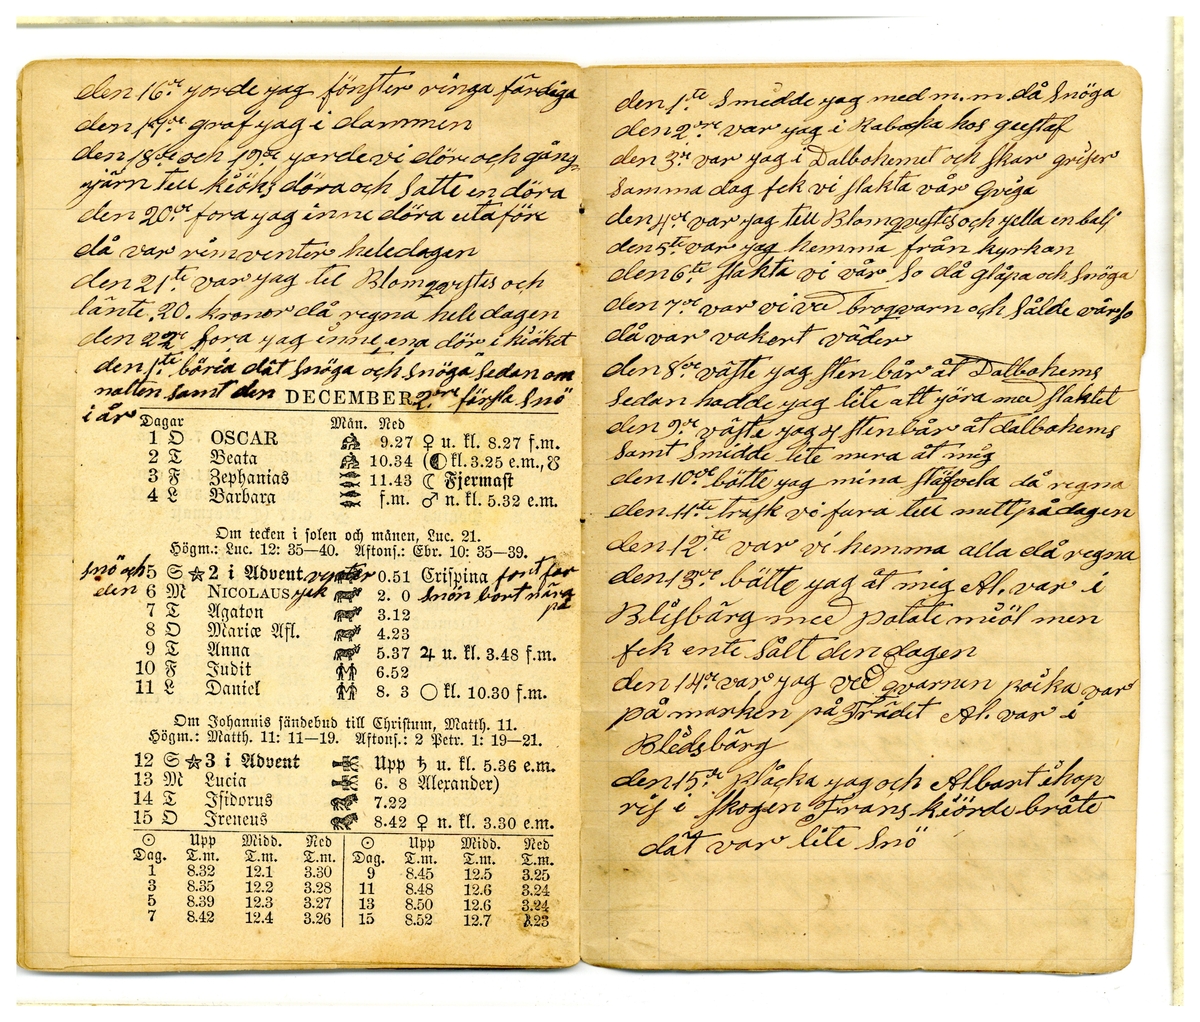 den 16de yorde yag fönster ringa färdiga
den 17de graf yag i dammen
den 18de och 19de yorde vi dör och gång
yjärn till kiöks döra och satte en döra
den 20de fora yag inne döra utaföre
då var rimventer hele dagen
den 21te var yag til Blomqvistes och
länte 20. kronor då regna hele dagen
den 22re fora yag inne ena dör i kiöket
den 1te böria dät snöga och snöga sedan om
natten samt den DECEMBER 2re försfa snö
i år
Dagar Mån. Ned
1 O OSCAR 9.27 ♀ u. kl. 8.27 f.m.
2 T Beata 10.34 (kl. 3.25 e.m., ☋
3 F Zephanias 11.43 ☾ Fjermast
4 L Barbara f.m. ♂ n. kl. 5.32 e.m.
Om tecken i solen och månen, Luc. 21.
Högm.: Luc. 12: 35—40. Aftons.: Ebr. 10: 35—39.
snö och 5 S ☆ 2 i Advent venter 0.51 Crispina fort far
den 6 M NICOLAUS yek 2. 0 snön bort nära
7 T Agaton 3.12 på
8 O Mariæ Afl. 4.23
9 T Anna 5.37 ♃ u. kl. 3.48 f.m.
10 F Judit 6.52
11 L Daniel 8. 3 ○ kl. 10.30 f.m.
Om Johannis sändebud till Christum, Matth. 11.
Högm.: Matth. 11: 11—19. Aftons.: 2 Petr. 1: 19—21.
12 S ☆ 3 i Advent Upp ♄ u. kl. 5.36 e.m.
13 M Lucia 6. 8 Alexander)
14 T Isidorus 7.22
15 O Ireneus 8.42 ♀ n. kl. 3.30 e.m.
☉ Upp Midd. Ned ☉ Upp Midd. Ned
Dag. T.m. T.m. T.m. Dag. T.m. T.m. T.m.
1 8.32 12.1 3.30 9 8.45 12.5 3.25
3 8.35 12.2 3.28 11 8.48 12.6 3.24
5 8.39 12.3 3.27 13 8.50 12.6 3.24
7 8.42 12.4 3.26 15 8.52 12.7 3.23
den 1te smedde yag med m.m. då snöga
den 2re var yag i Rabocka hos gustaf
den 3re var yag i Dalbohemet och skar griser
samma dag fek vi slakta vår Gviga
den 4de var yag till Blomqvistes och yella en balj
den 5te var yag hemma från kyrkan
den 6te slakta vi vår so då glåpa och snöga
den 7de var vi va broqvarn och sålde vår so
då var vakert väder
den 8de väste yag sten bår åt Dalbohems
sedan hadde yag lite att yöra med slaktet
den 9de väste yag sten bår åt dalbohems
samt smidde lite mera åt mig
den 10de bätte yag mina stäfvela då regna
den 11te trask vi fura till mitt på dagen
den 12te var vi hemma alla då regna
den 13de bätte yag åt mig Al. var i
Blisbärg med potate miöl men
fek ente sålt den dagen
den 14de var yag ved qvarnen påcka var
på marken på Trädet Al. var i
Bledsbärg
den 15de plåcka yag och Albart ihop
ris i skogen Frans kiörde bråte
dät var lite snö